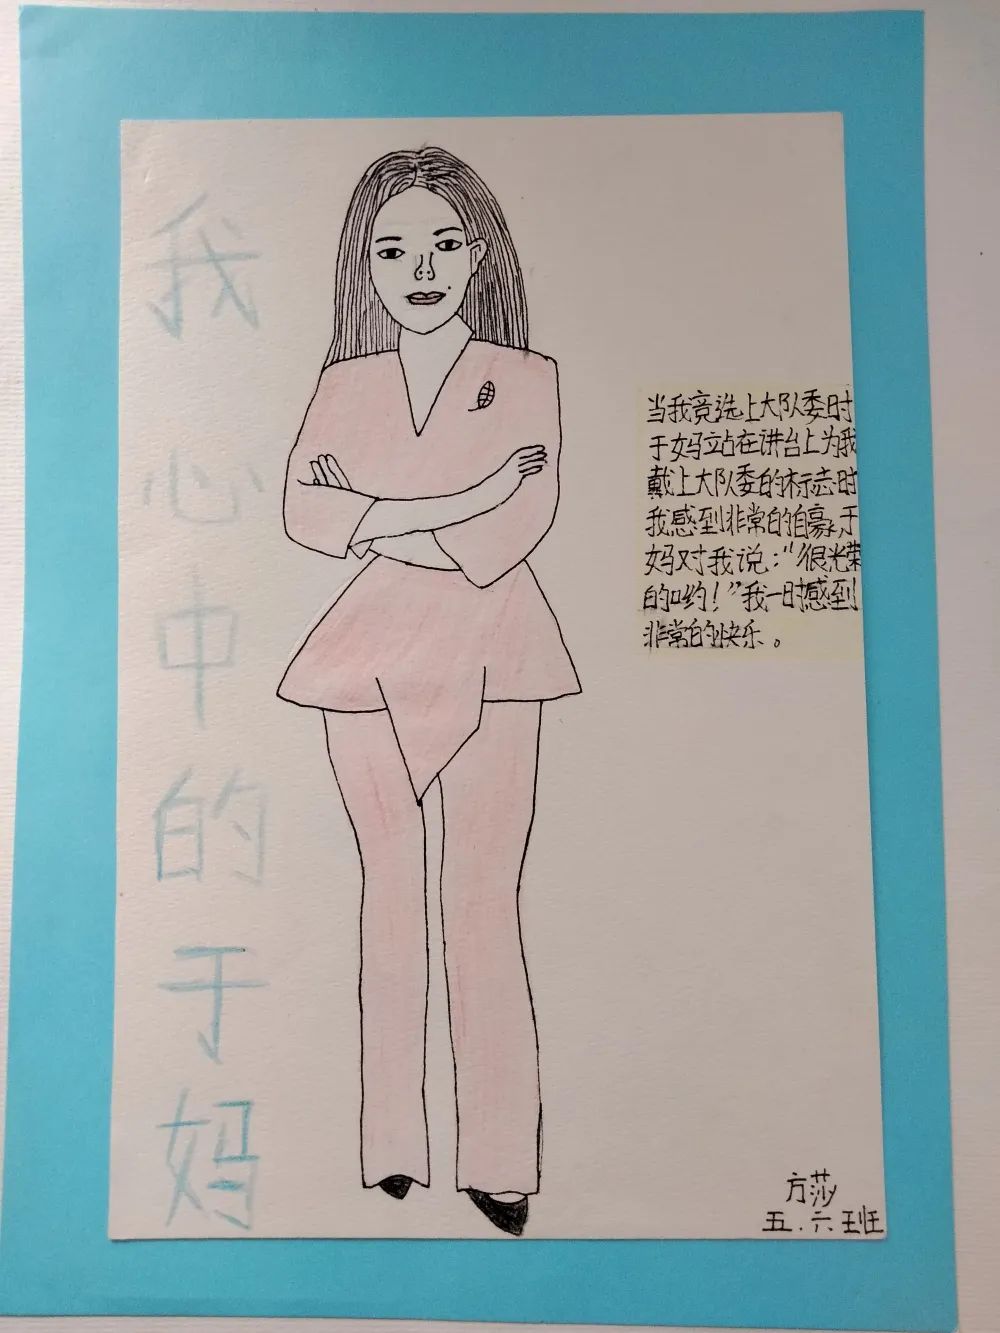 我心中的于妈
当我竞选上大队委时
于妈站在讲台上为我
戴上大队委的标志时
我感到非常的自豪,于
妈对我说：“很光荣
的哟！”我一时感到
非常的快乐。
方莎
五.六班